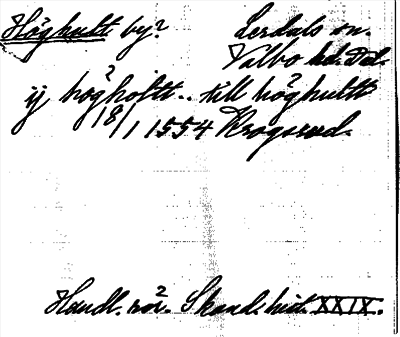 Höghult by? Lerdals sn.
Valbo hd. Dal.
ij högholtt.. till höghultt
18/1 1554 Krogsrud.
Handl. rör. Skand. hist. XXIX.